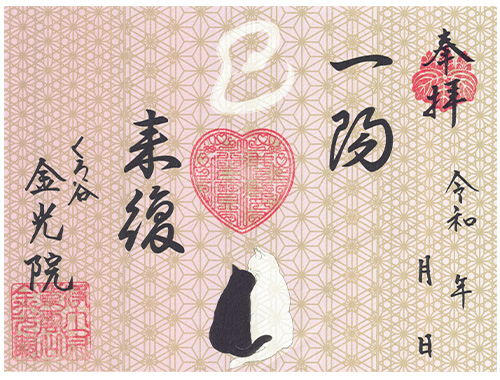 奉拝
令和 年
月 日
一陽
巳
来復
くろ谷
金光院